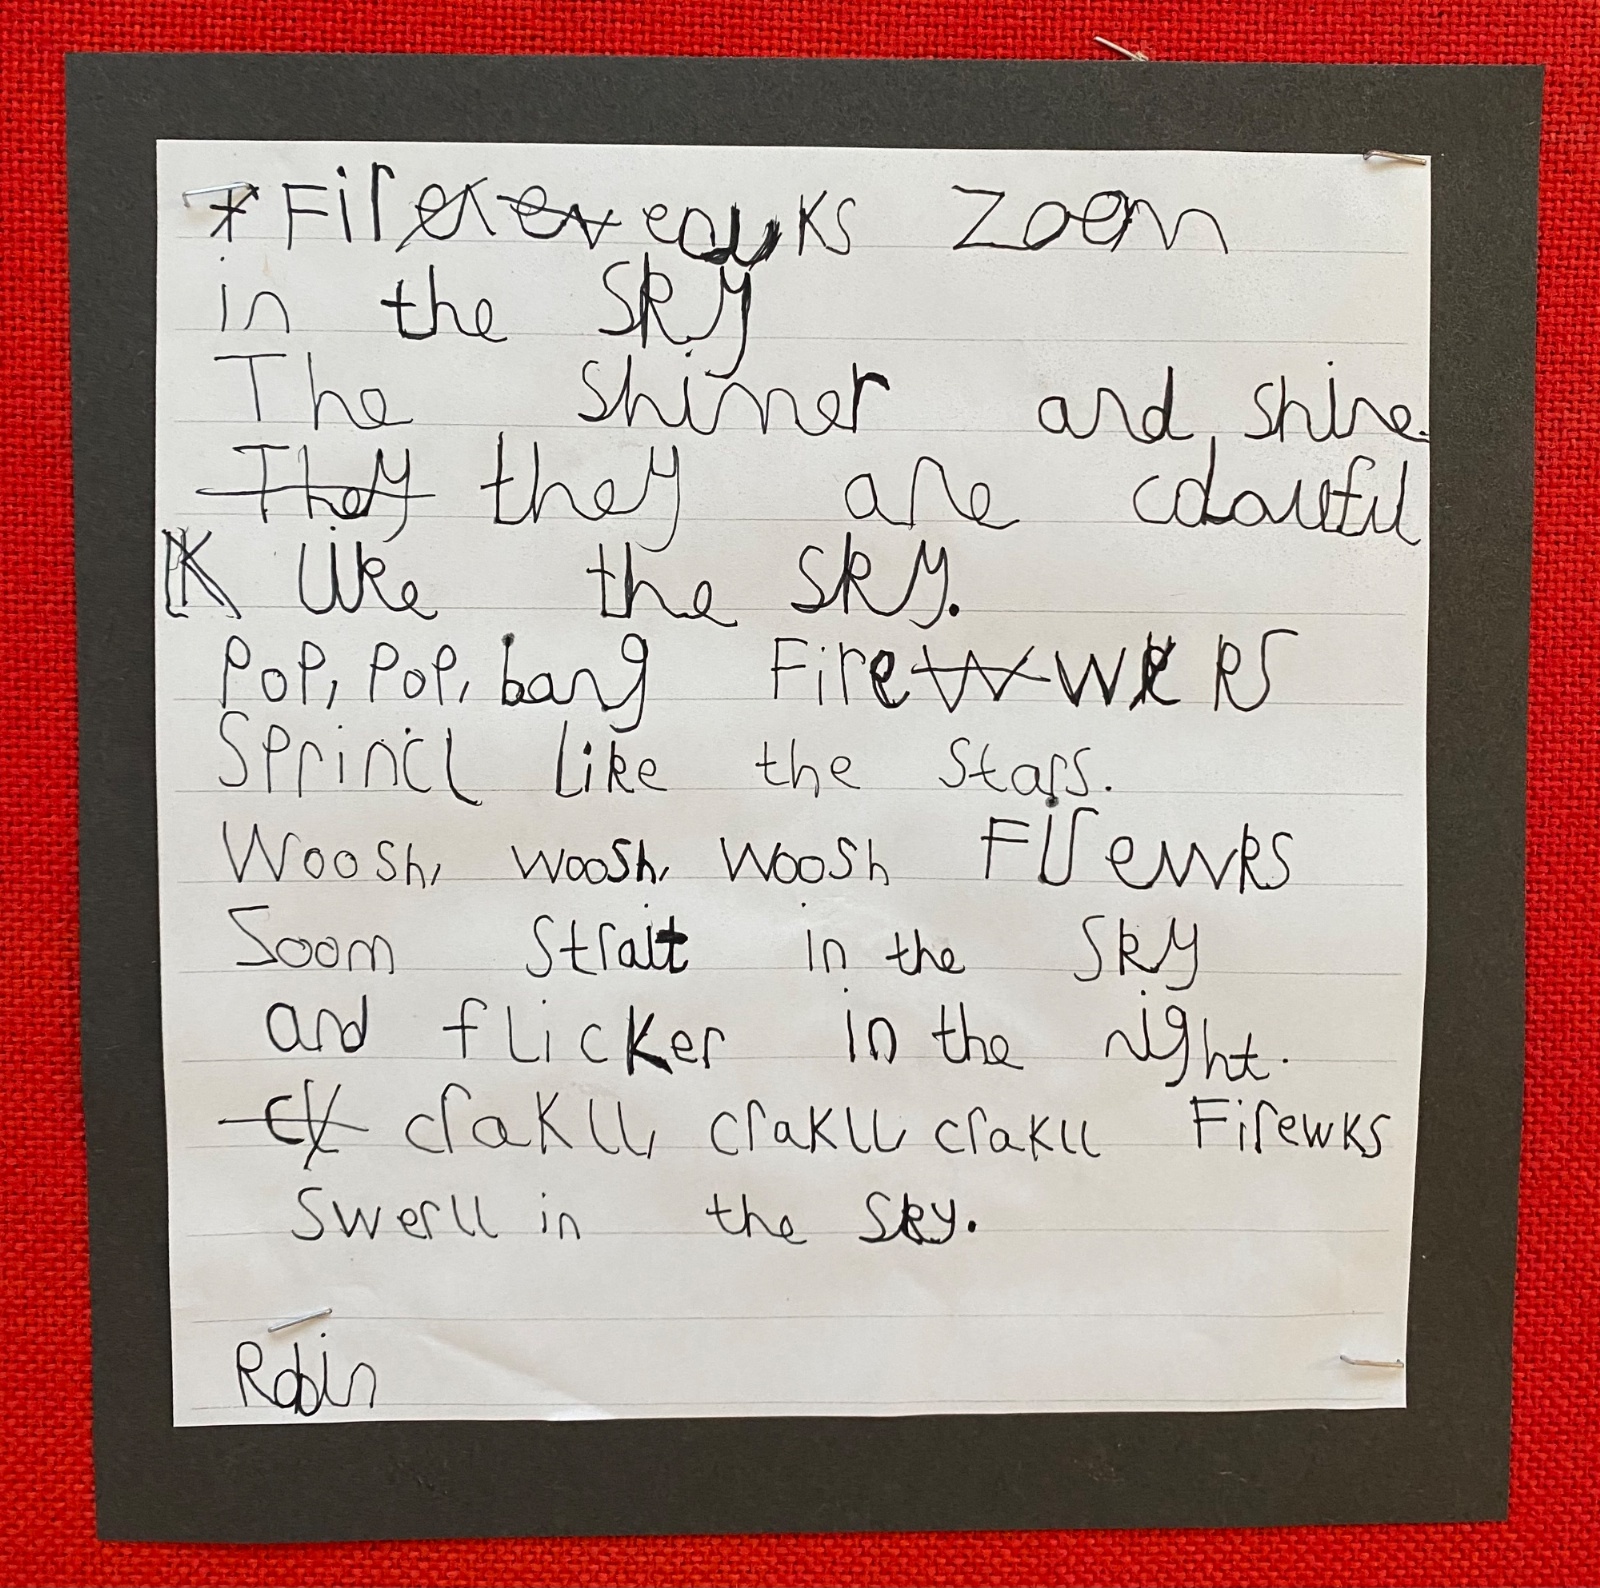 Fireworks zoom
in the sky
The shimer and shine.
They they are colourful
like the sky.
Pop, Pop, bang Firewrks
Sprincl like the stars.
Woosh, woosh, woosh Firewks
Soom strait in the sky
and flicker in the night.
crakll, crakll, crakll Firewks
Swerll in the sky.
Robin